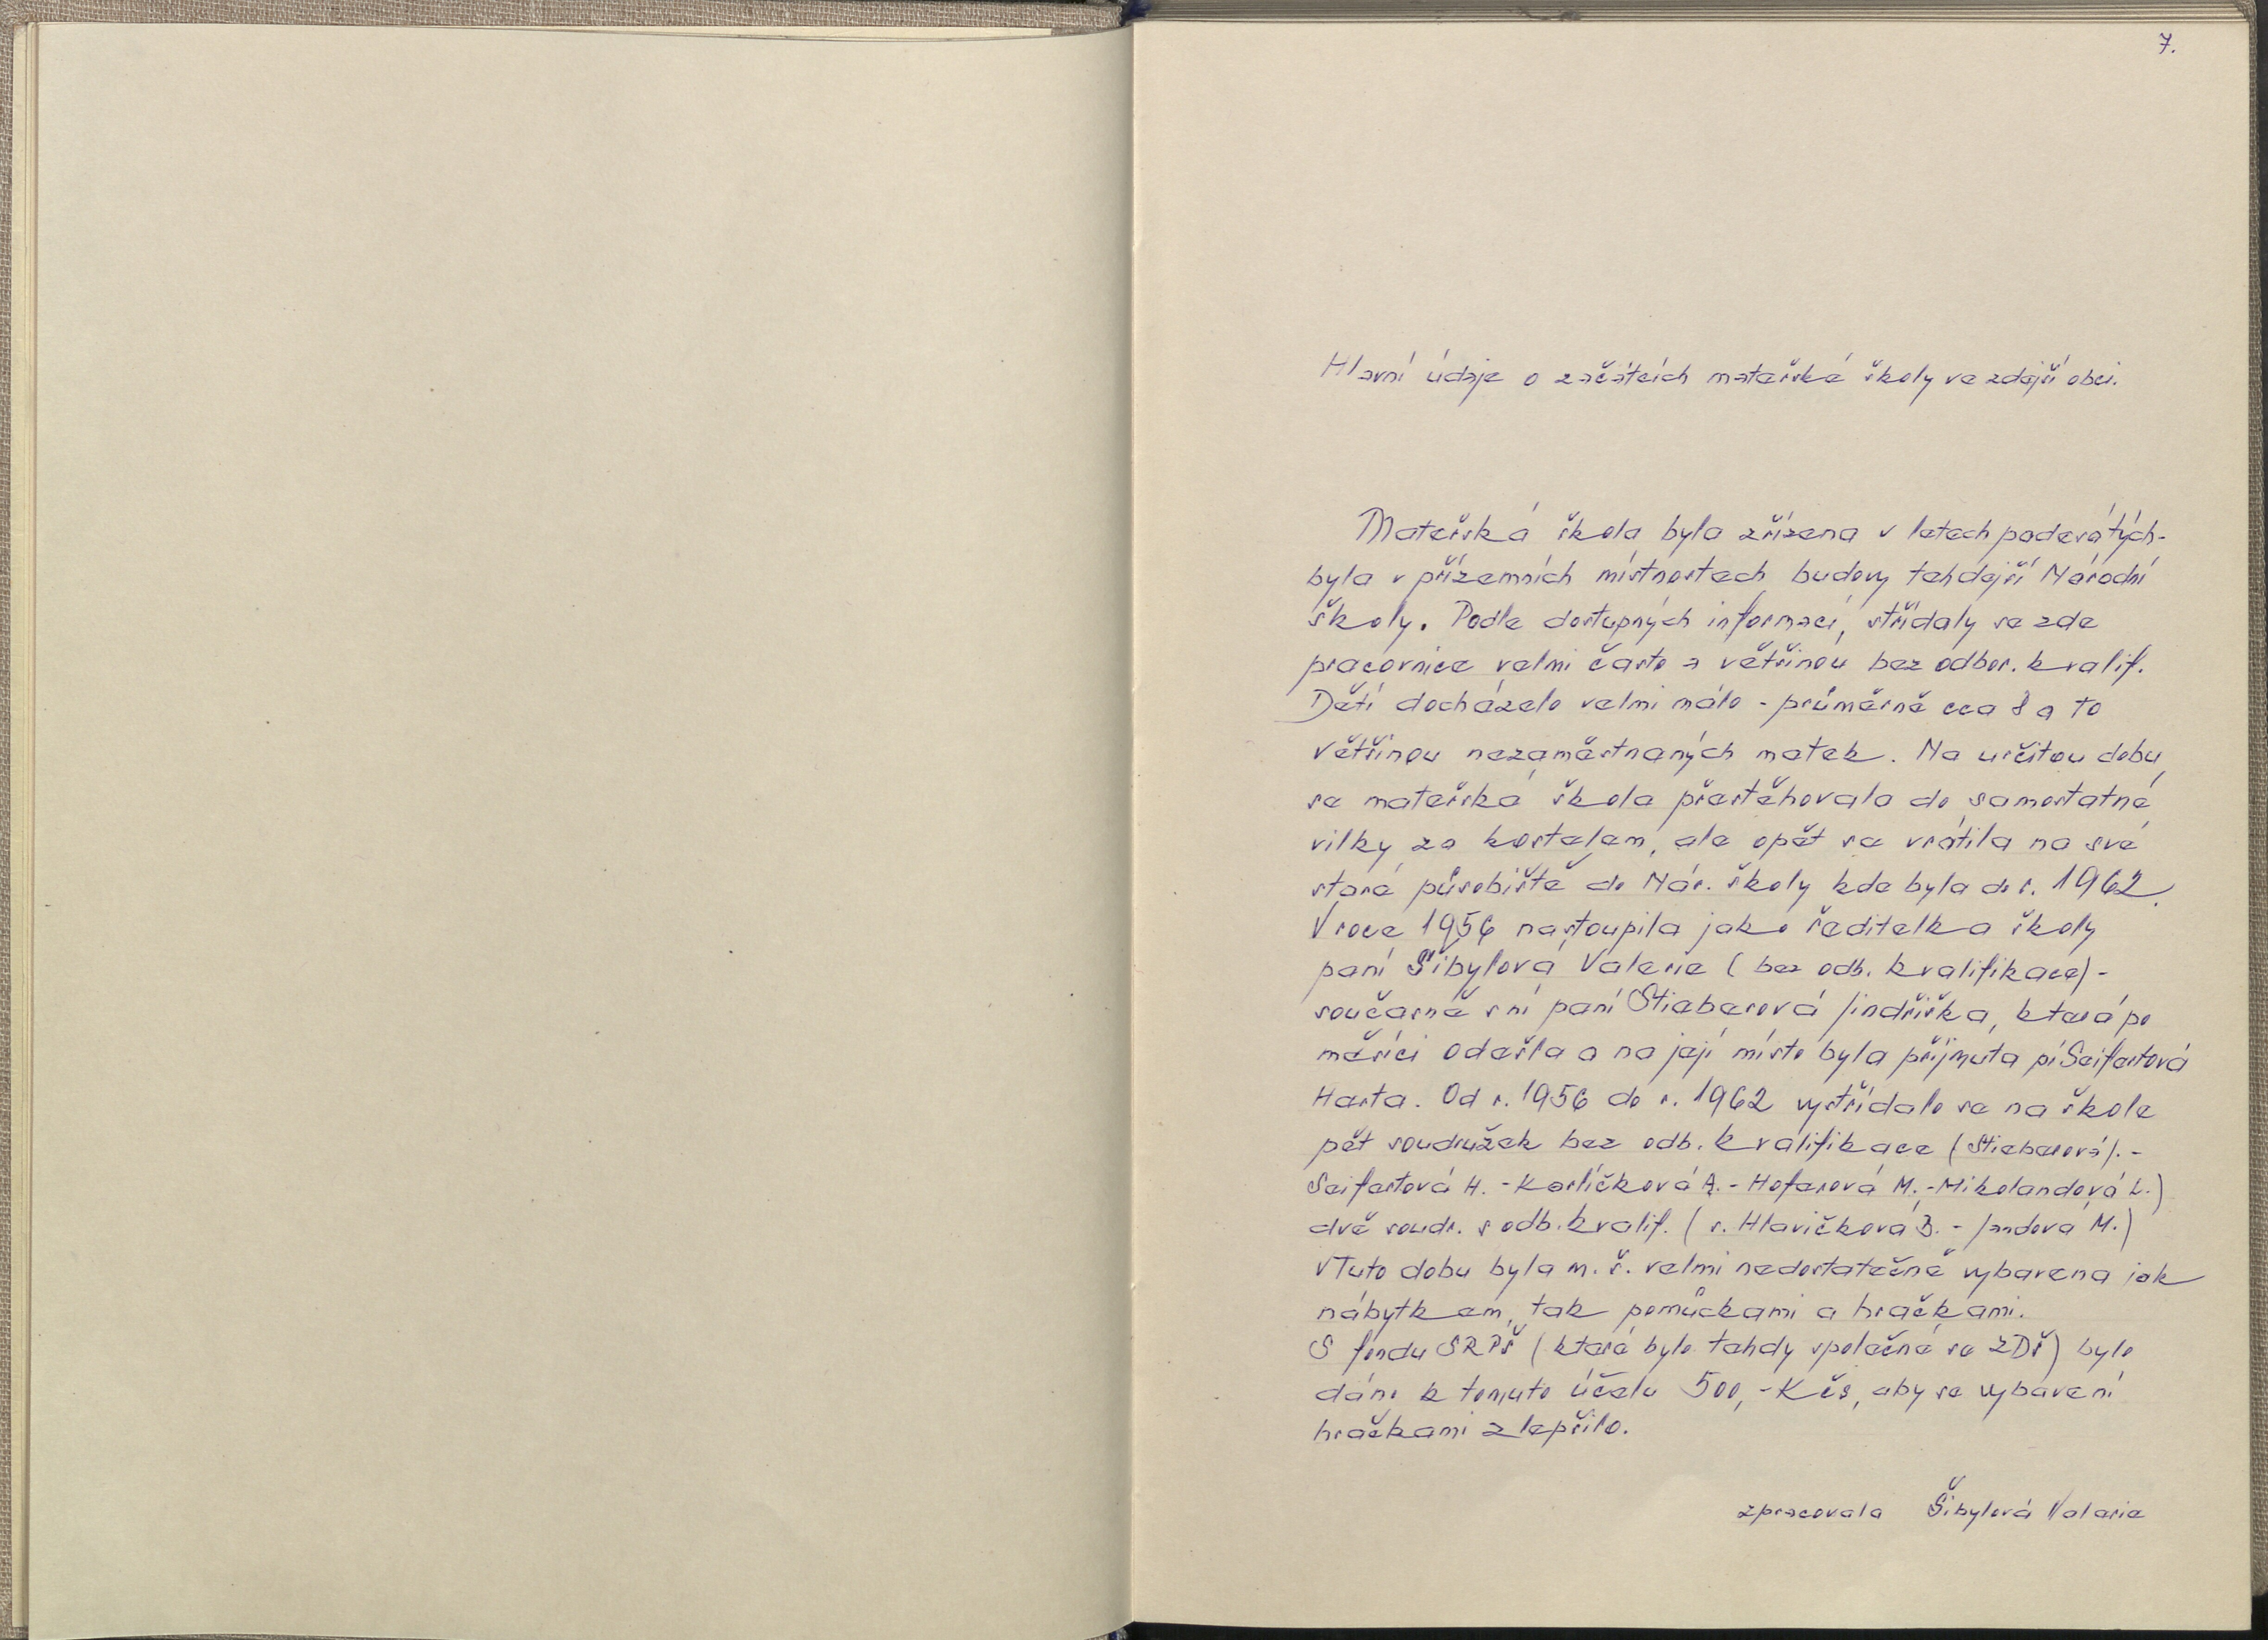 7.
Hlavní údaje o začátcích mateřské školy ve zdejší obci.
Mateřská škola byla zřízena v letech padesátých-
byla v přízemních místnostech budovy tehdejší Národní
školy. Podle dostupných informací, střídaly se zde
pracovnice velmi často a většinou bez odbor. kvalif.
Dětí docházelo velmi málo - průměrně cca 8 a to
většinou nezaměstnaných matek. Na určitou dobu,
se mateřská škola přestěhovala do samostatné
vilky za kostelem, ale opět se vrátila na své
staré působiště do Nár. školy kde byla do r. 1962.
V roce 1956 nastoupila jako ředitelka školy
paní Šibylová Valerie ( bez odb. kvalifikace) -
současně s ní paní Stieberová Jindřiška, která po
měsíci odešla a na její místo byla přijmuta pí Seifertová
Herta. Od r. 1956 do r. 1962 vystřídalo se na škole
pět soudružek bez odb. kvalifikace (Stieberová J. -
Seifertová H. - Karlíčková A. - Hoferová M. - Mikolandová L.)
dvě soudr. s odb. kvalif. ( s. Hlavičková B. - Jandová M.)
V Tuto dobu byla m. š. velmi nedostatečně vybavena jak
nábytkem, tak pomůckami a hračkami.
S fondu SRPŠ ( které bylo tehdy společné se ZDŠ) bylo
dáno k tomuto účelu 500,- Kčs, aby se vybavení
hračkami zlepšilo.
zpracovala Šibylová Valerie